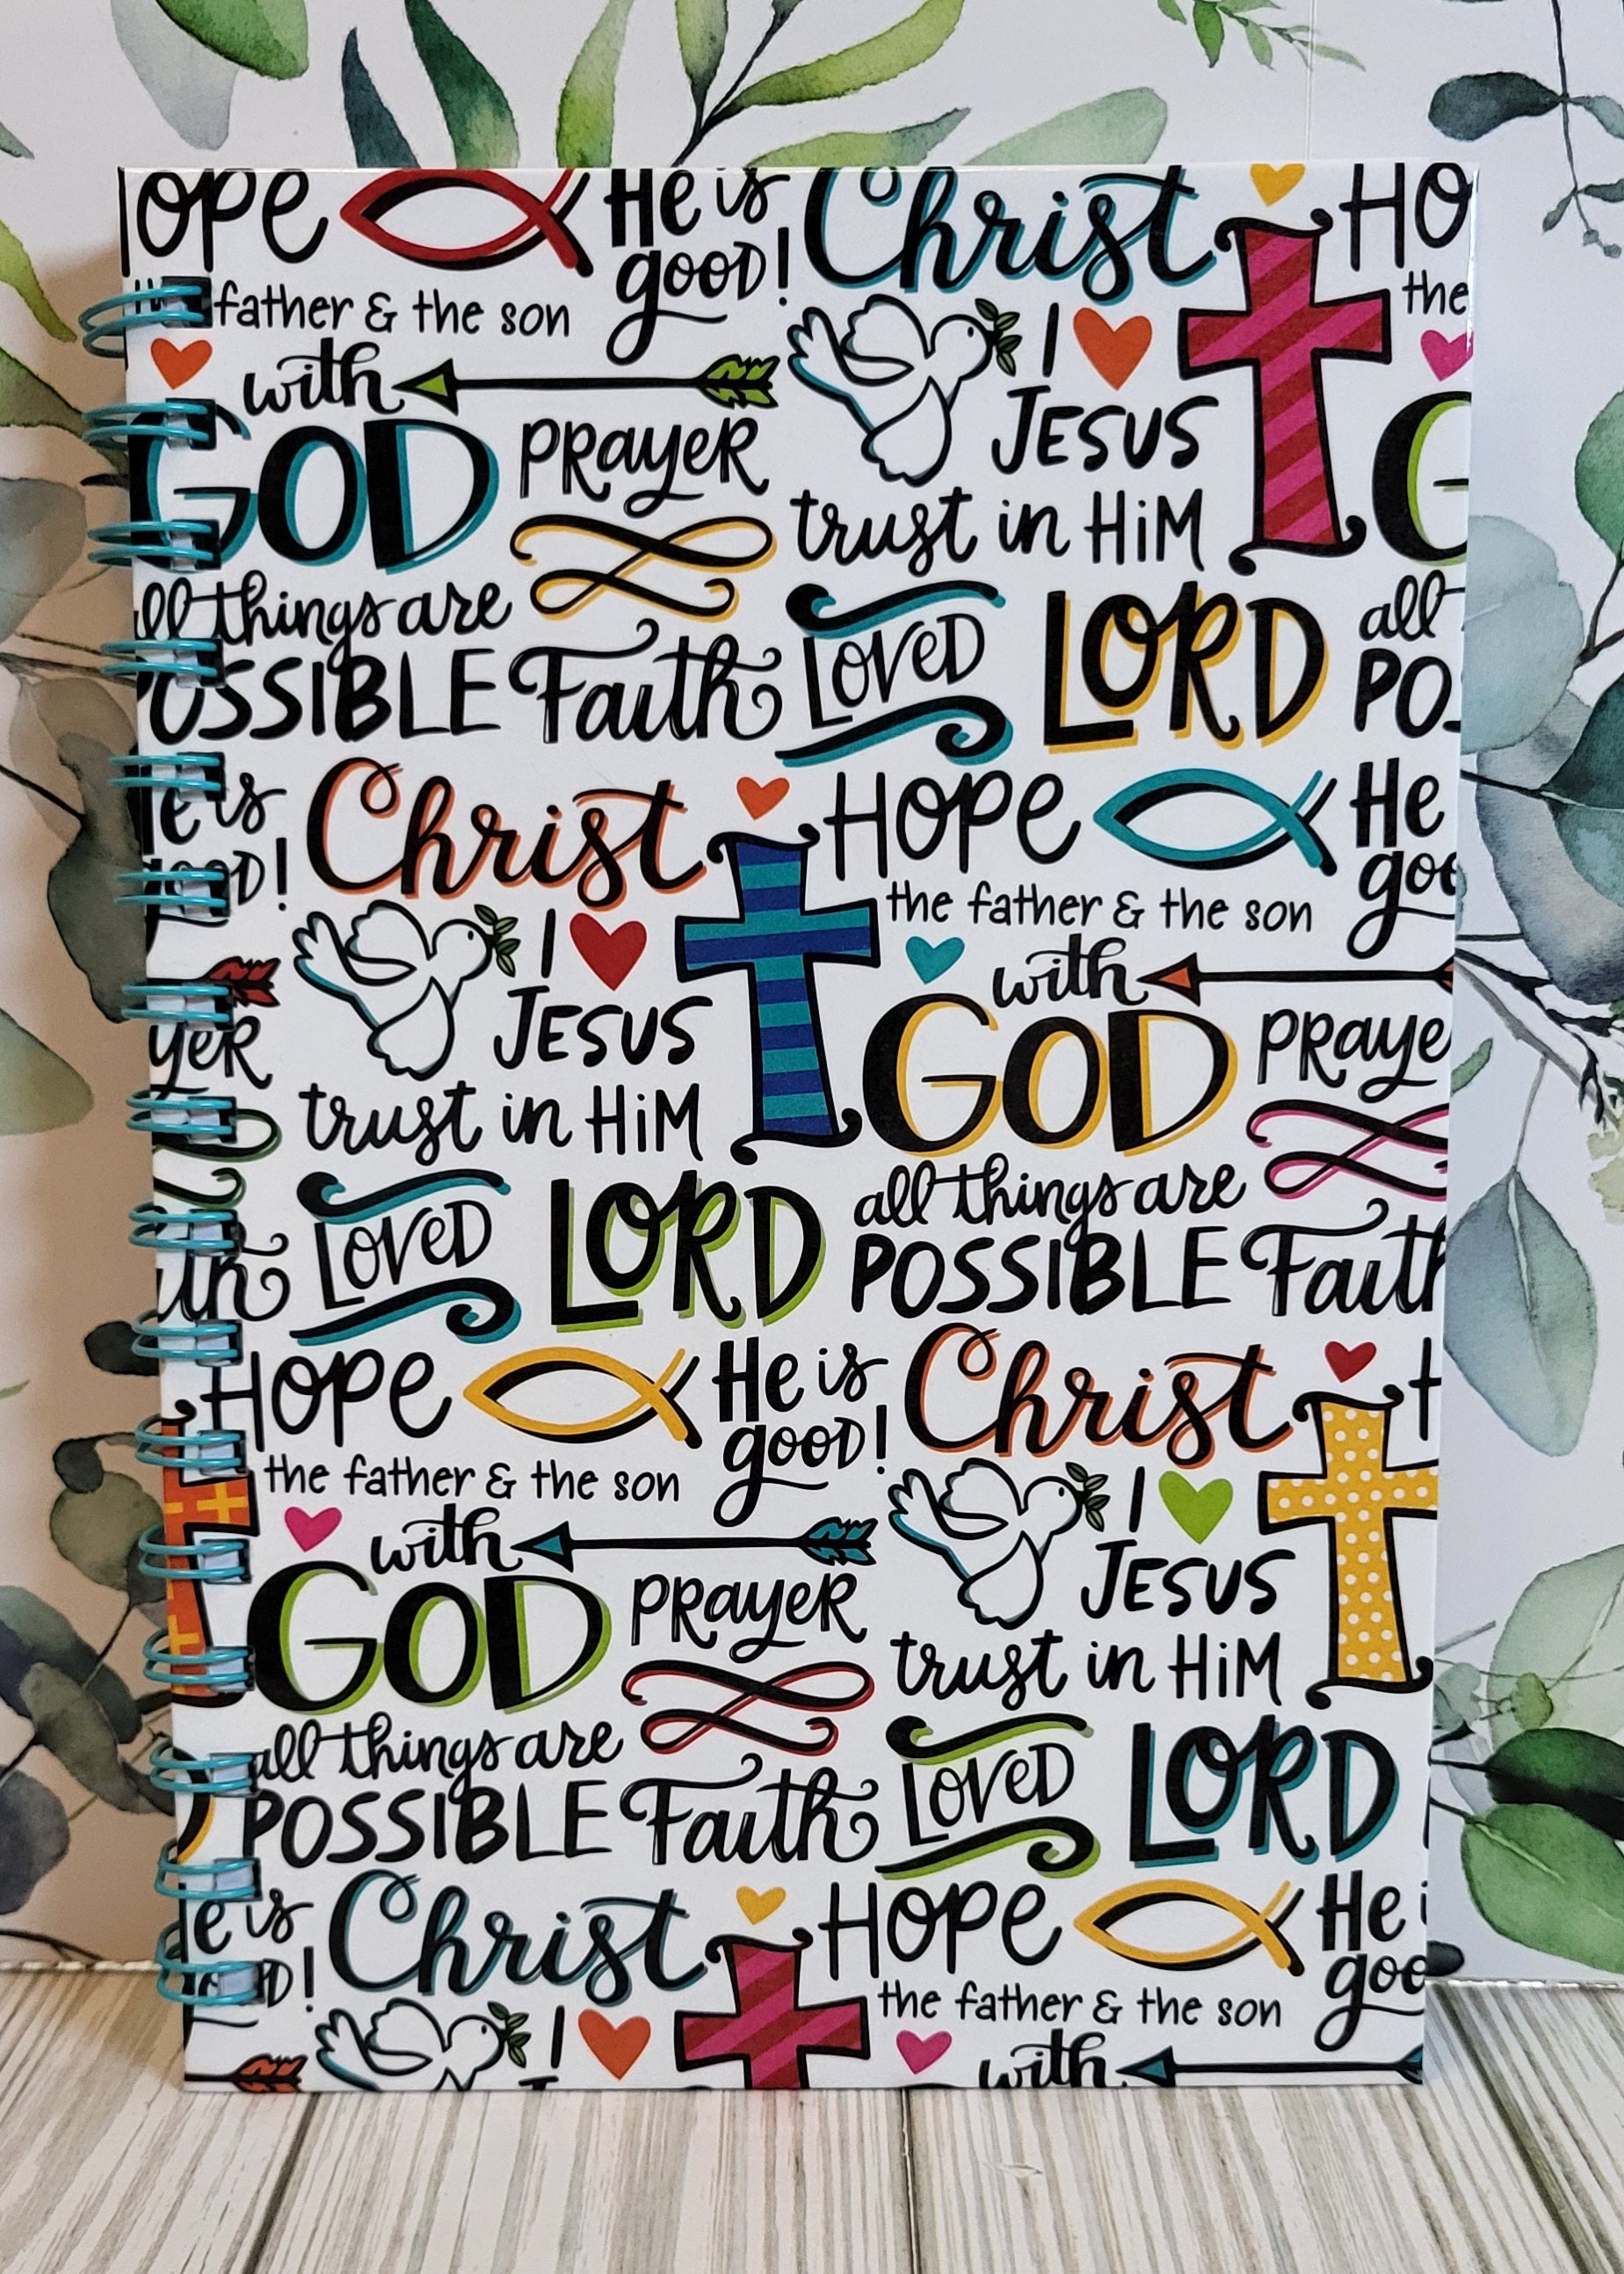 ope He is Christ Ho
good!
the father & the son the
I
with
JESUS
GOD PRayeR G
trust in HiM
all things are all
POSSIBLE Faith LOVED LORD PO
e is Christ Hope He
good! goo
the father & the son
I
with
yeR JESUS GOD PRaye
trust in HiM
all things are
th LOVED LORD POSSIBLE Faith
Hope He is Christ H
good!
the father & the son
I
with
JESUS
GOD PRayeR
trust in HiM
all things are
POSSIBLE Faith LOVED LORD
e is Christ Hope He i
good! goo
the father & the son
I
with